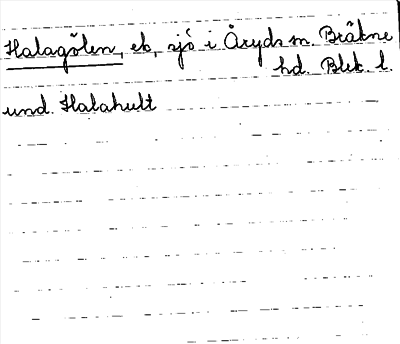 Halagölen, ek, sjö i Åryds sn. Bräkne
hd. Blek. l.
und. Halahult